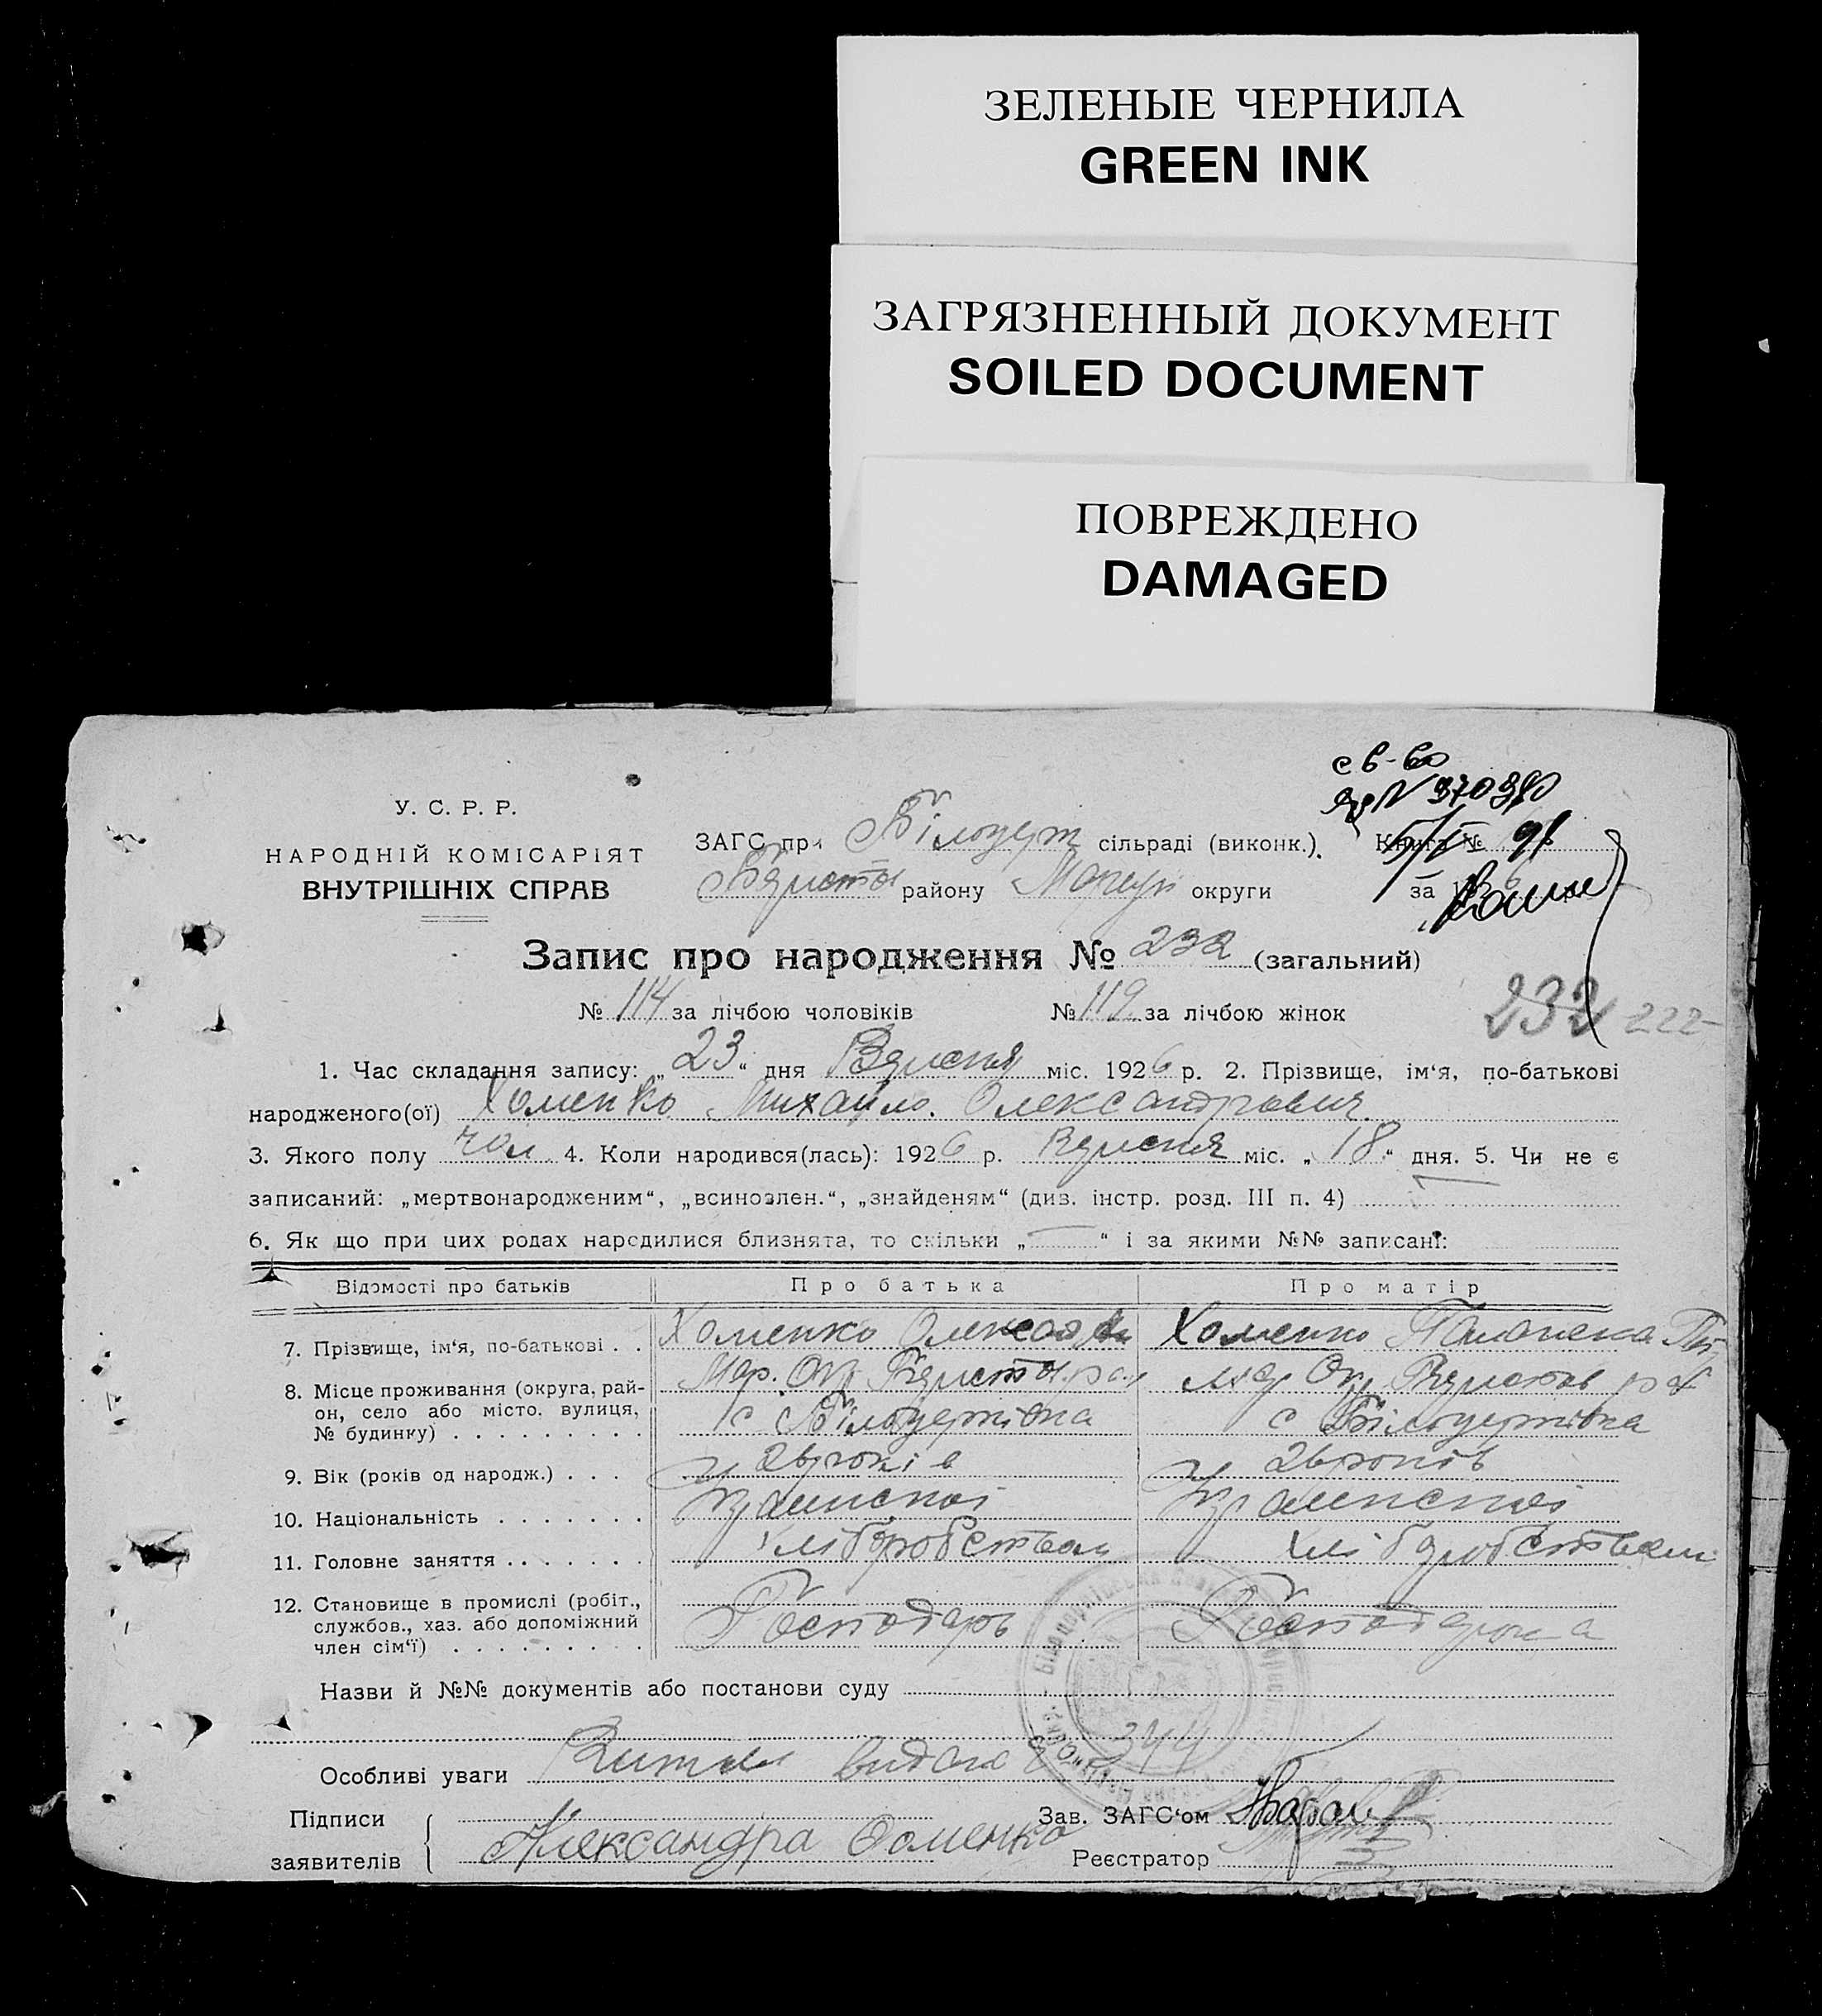 ЗЕЛЕНЫЕ ЧЕРНИЛА
GREEN INK
ЗАГРЯЗНЕННЫЙ ДОКУМЕНТ
SOILED DOCUMENT
ПОВРЕЖДЕНО
DAMAGED
св-во
N 370390
У. С. Р. Р.
НАРОДНІЙ КОМІСАРІЯТ
ВНУТРІШНІХ СПРАВ
ЗАГС при Білоцерк сільраді (виконк.). Книга №
району Маріуп округи за
Запис про народження № 232 (загальний)
№ 114 за лічбою чоловіків № 119 за лічбою жінок
232 222
1. Час складання запису: „23“ дня Вересня міс. 1926 р. 2. Прізвище, ім‘я, по-батькові
народженого(ої) Хоменко Михайло. Олександрович
3. Якого полу чол 4. Коли народився(лась): 1926 р. Вересня міс. „18“ дня. 5. Чи не є
записаний: „мертвонародженим“, „всиновлен.“, „знайденям“ (див. інстр. розд. III п. 4)
6. Як що при цих родах народилися близнята, то скільки „—“ і за якими №№ записані:
Відомості про батьків Про батька Про матір
7. Прізвище, ім‘я, по-батькові . . Хоменко Хоменко
8. Місце проживання (округа, рай-
он, село або місто, вулиця, с Білоцерківка с Білоцерківка
№ будинку) . . . . . . . . .
9. Вік (років од народж.) . . . 26 років 26 років
10. Національність . . . . . . . Украинської Украинської
11. Головне заняття . . . . . . . хліборобством хліборобством
12. Становище в промислі (робіт.,
службов., хаз. або допоміжний Господарь Господарка
член сім‘ї) . . . . . . . . .
Назви й №№ документів або постанови суду
Особливі уваги Витяг видана 344
Підписи
заявителів Александра Хоменко
Зав. ЗАГС‘ом
Реєстратор